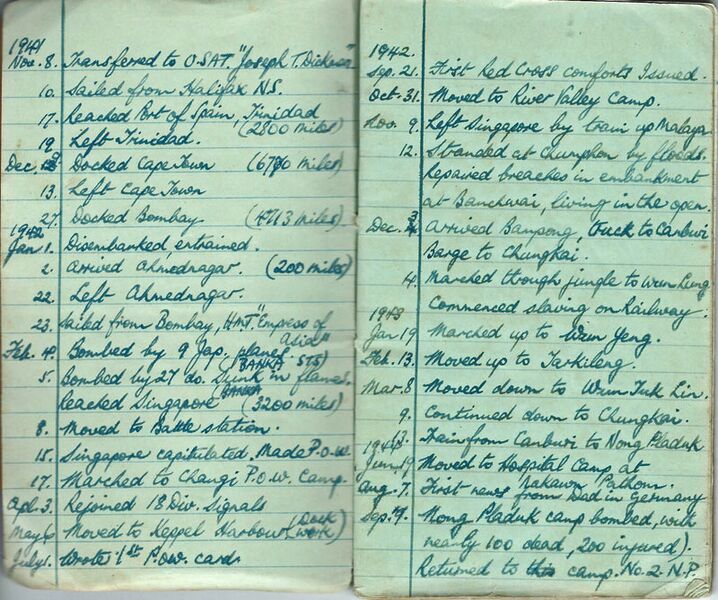 1941
Nov. 8. Transferred to O.S.A.T. "Joseph T. Dickman"
10. Sailed from Halifax N.S.
17. Reached Port of Spain, Trinidad
(2800 miles)
19. Left Trinidad.
Dec. 9 Docked Cape Town (6780 miles)
13. Left Cape Town
27. Docked Bombay (4713 miles)
1942
Jan 1. Disembarked, entrained.
2. Arrived Ahmednagar. (200 miles)
22. Left Ahmednagar.
23. Sailed from Bombay, HMT. "Empress of
Asia"
Feb. 4. Bombed by 9 Jap. planes
BANKA STS)
5. Bombed by 27 do. Sunk in flames.
Reached Singapore (3200 miles)
8. Moved to Battle station.
15. Singapore capitulated. Made P.O.W.
17. Marched to Changi P.O.W. Camp.
Apl. 3. Rejoined 18 Div. Signals
May 6 Moved to Keppel Harbour (Dock
work)
July 1. Wrote 1st P.O.W. card.
1942.
Sep. 21. First Red Cross comforts Issued.
Oct. 31. Moved to River Valley Camp.
Nov. 9. Left Singapore by train up Malaya
12. Stranded at Chumphon by floods.
Repaired breaches in embankment
at Banchwai, living in the open.
Dec. 3 Arrived Bampong, truck to Canburi
Barge to Chungkai.
4. Marched through jungle to Wun Lung
Commenced slaving on Railway.
1943
Jan 19 Marched up to Wun Yeng.
Feb. 13. Moved up to Tarkileng.
Mar. 8 Moved down to Wun Tuk Lin.
9. Continued down to Chungkai.
3. Train from Canburi to Nong Pladuk
1944
Jun 19 Moved to Hospital Camp at
Nakawn Pathom.
Aug. 7. First news from Dad in Germany
Sep. 9. Nong Pladuk camp bombed, with
nearly 100 dead, 200 injured).
Returned to this camp. No. 2. N.P.